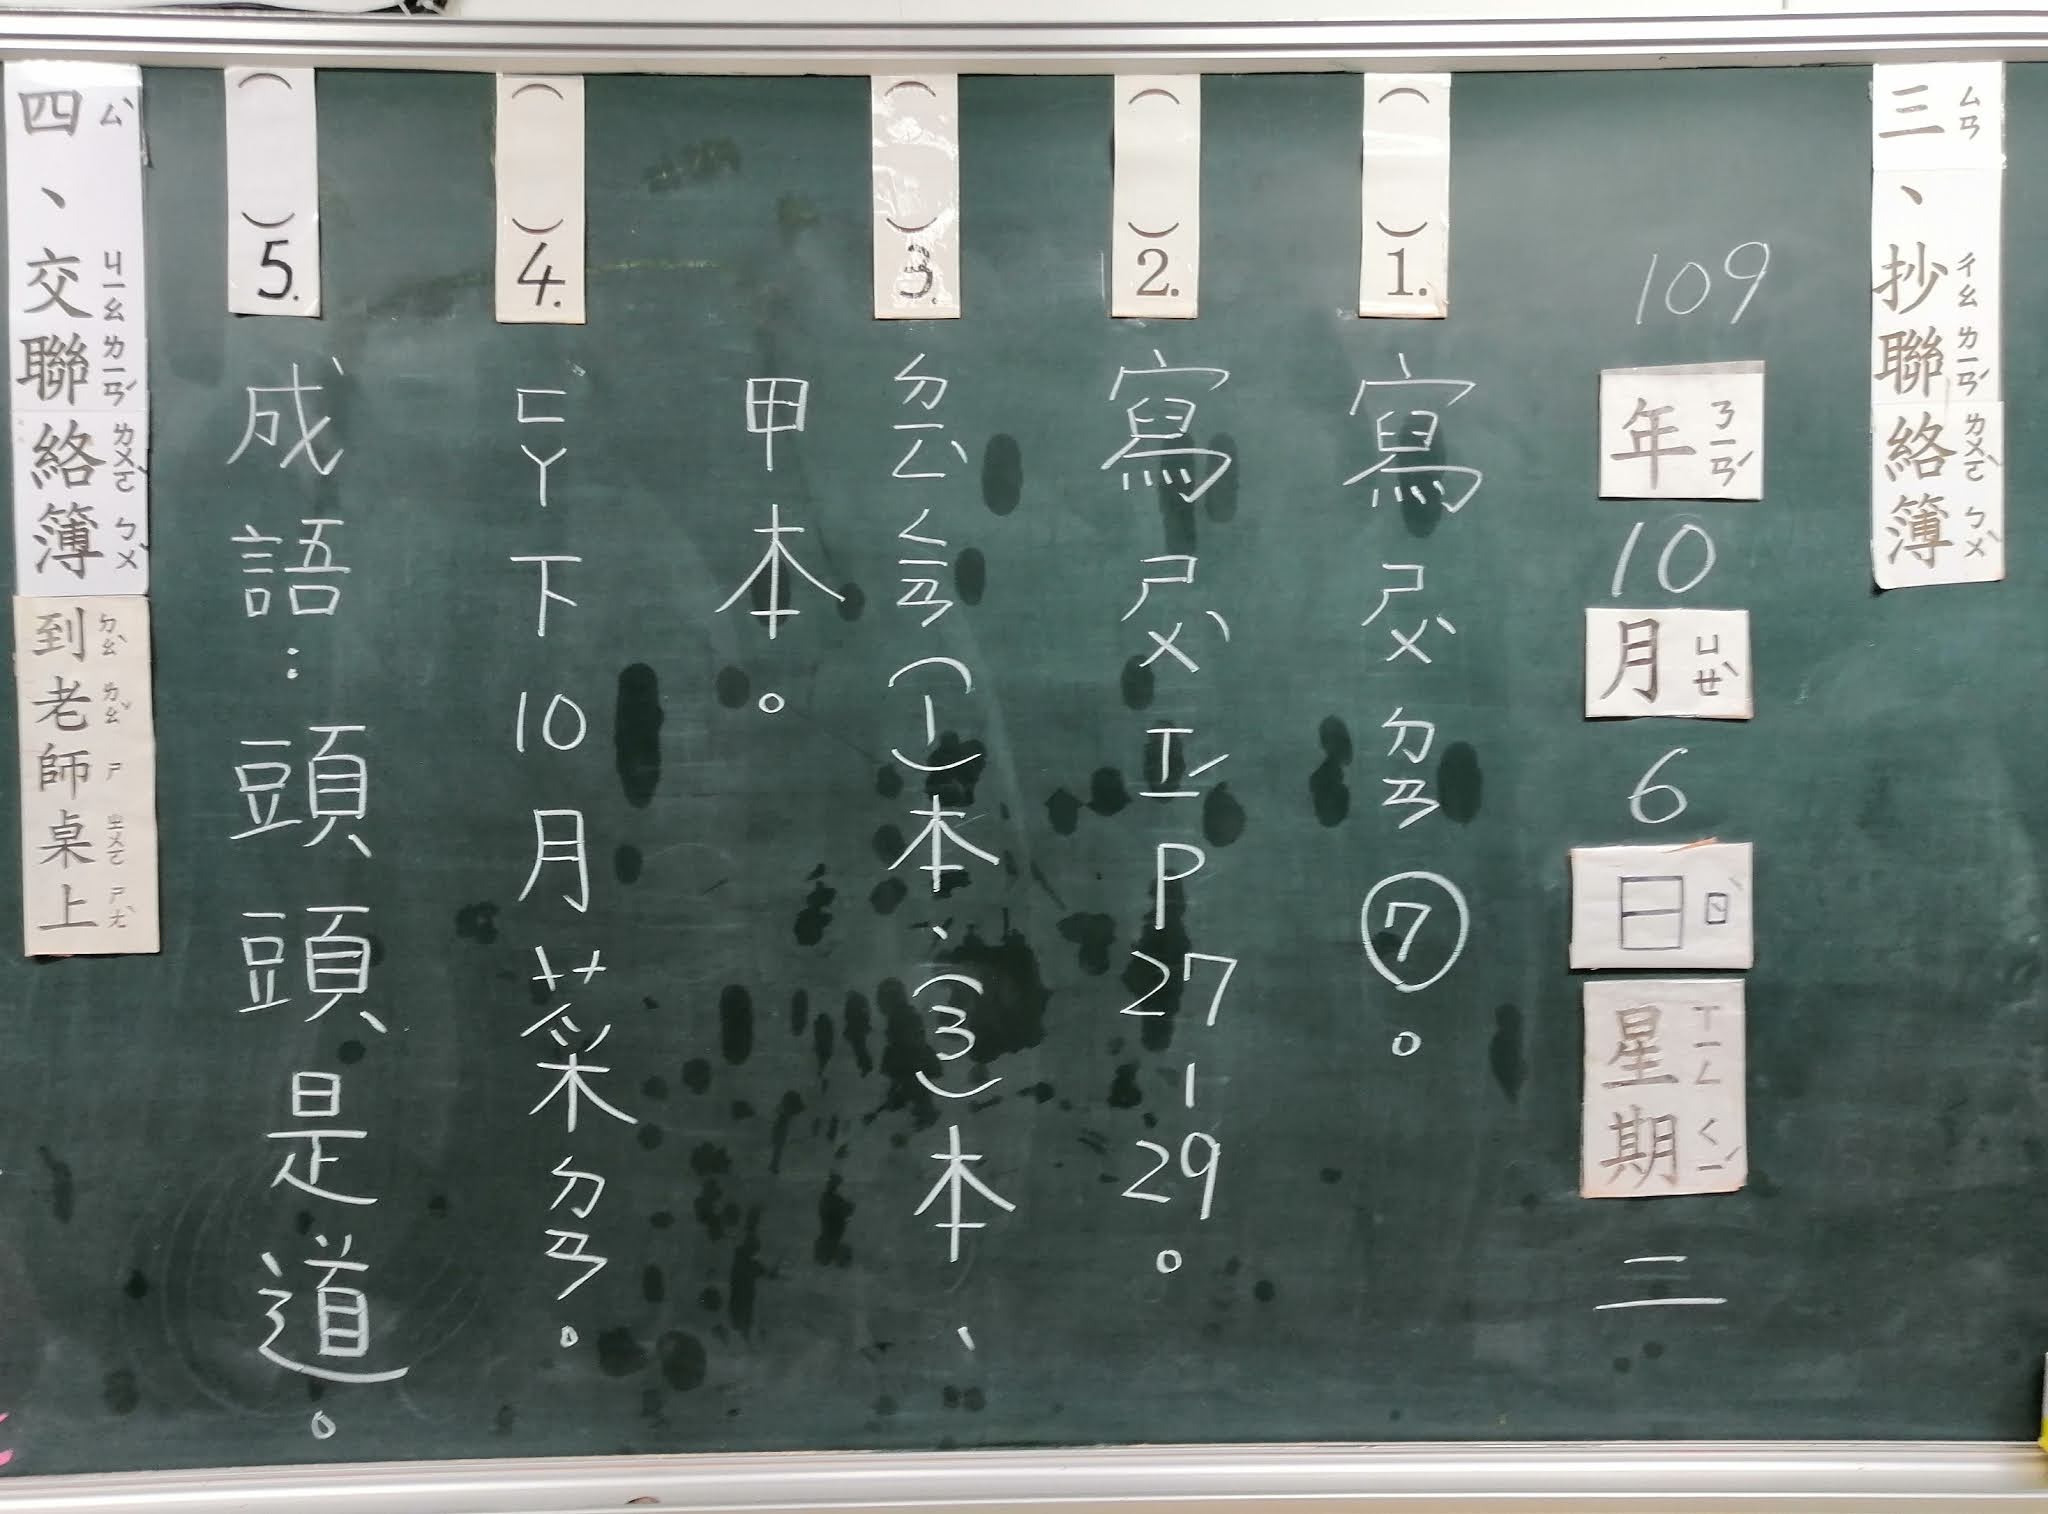 三、抄聯絡簿
ㄙㄢ ㄔㄠ ㄌㄧㄢˊ ㄌㄨㄛˋ ㄅㄨˋ
109年10月6日星期二
ㄋㄧㄢˊ ㄩㄝˋ ㄖˋ ㄒㄧㄥ ㄑㄧˊ
( )1.寫ㄕㄨˋㄉㄢ⑦。
( )2.寫ㄕㄨˋㄒㄧˊP27-29。
( )3.ㄉㄧㄥˋㄑㄧㄢ(1)本、(3)本、
甲本。
( )4.ㄈㄚ下10月菜ㄉㄢ。
( )5.成語:頭頭是道。
四、交聯絡簿到老師桌上
ㄙˋ ㄐㄧㄠ ㄌㄧㄢˊ ㄌㄨㄛˋ ㄅㄨˋ ㄉㄠˋ ㄌㄠˇ ㄕ ㄓㄨㄛ ㄕㄤˋ